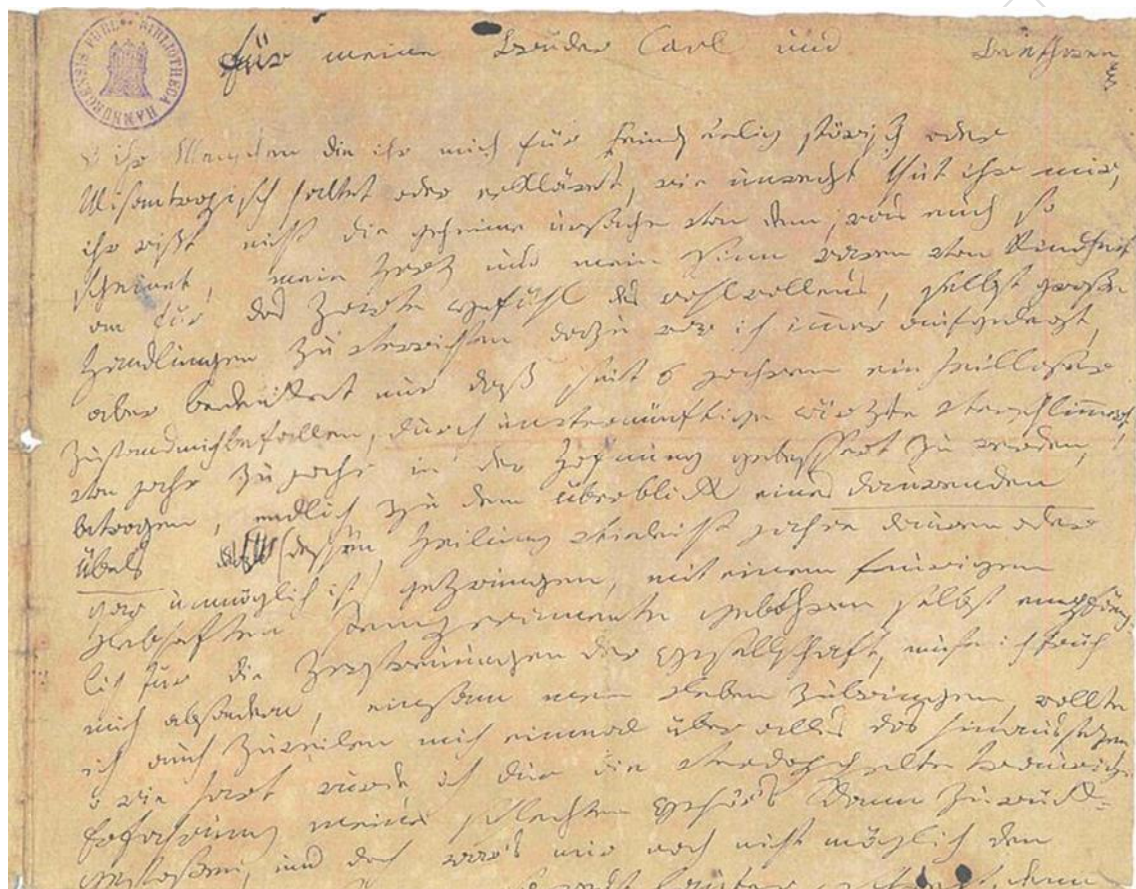 BIBLIOTHECA HAMBURGENSIS PUBL
für meine Brüder Carl und Beethoven
o ihr Menschen die ihr mich für feindseelig störisch oder
Misantropisch haltet oder erkläret, wie unrecht thut ihr mir,
ihr wißt nicht die geheime urßache von dem, was euch so
scheinet, mein Herz und mein Sinn waren von Kindheit
an für das Zarte Gefühl des wohlwollens, selbst große
Handlungen zu verrichten dazu war ich imer aufgelegt,
aber bedenket nur daß seit 6 jahren ein heilloser
Zustand mich befallen, durch unvernünftige ärzte verschlimmert,
von jahr zu jahr in der Hofnung gebessert zu werden,
betrogen, endlich zu dem überblick eines daurenden
übels (dessen Heilung vieleicht jahre dauren oder
gar unmöglich ist) gezwungen, mit einem feurigen
Lebhaften Temperamente gebohren selbst empfäng
lich für die Zerstreuungen der Gesellschaft, muste ich früh
mich absondern, einsam mein Leben zubringen, wollte
ich auch zuweilen mich einmal über alles das hinaussezen,
o wie hart wurde ich dur die verdoppelte traurige
Erfahrung meines schlechten Gehör's dann zurück-
gestoßen, und doch war's mir noch nicht möglich den